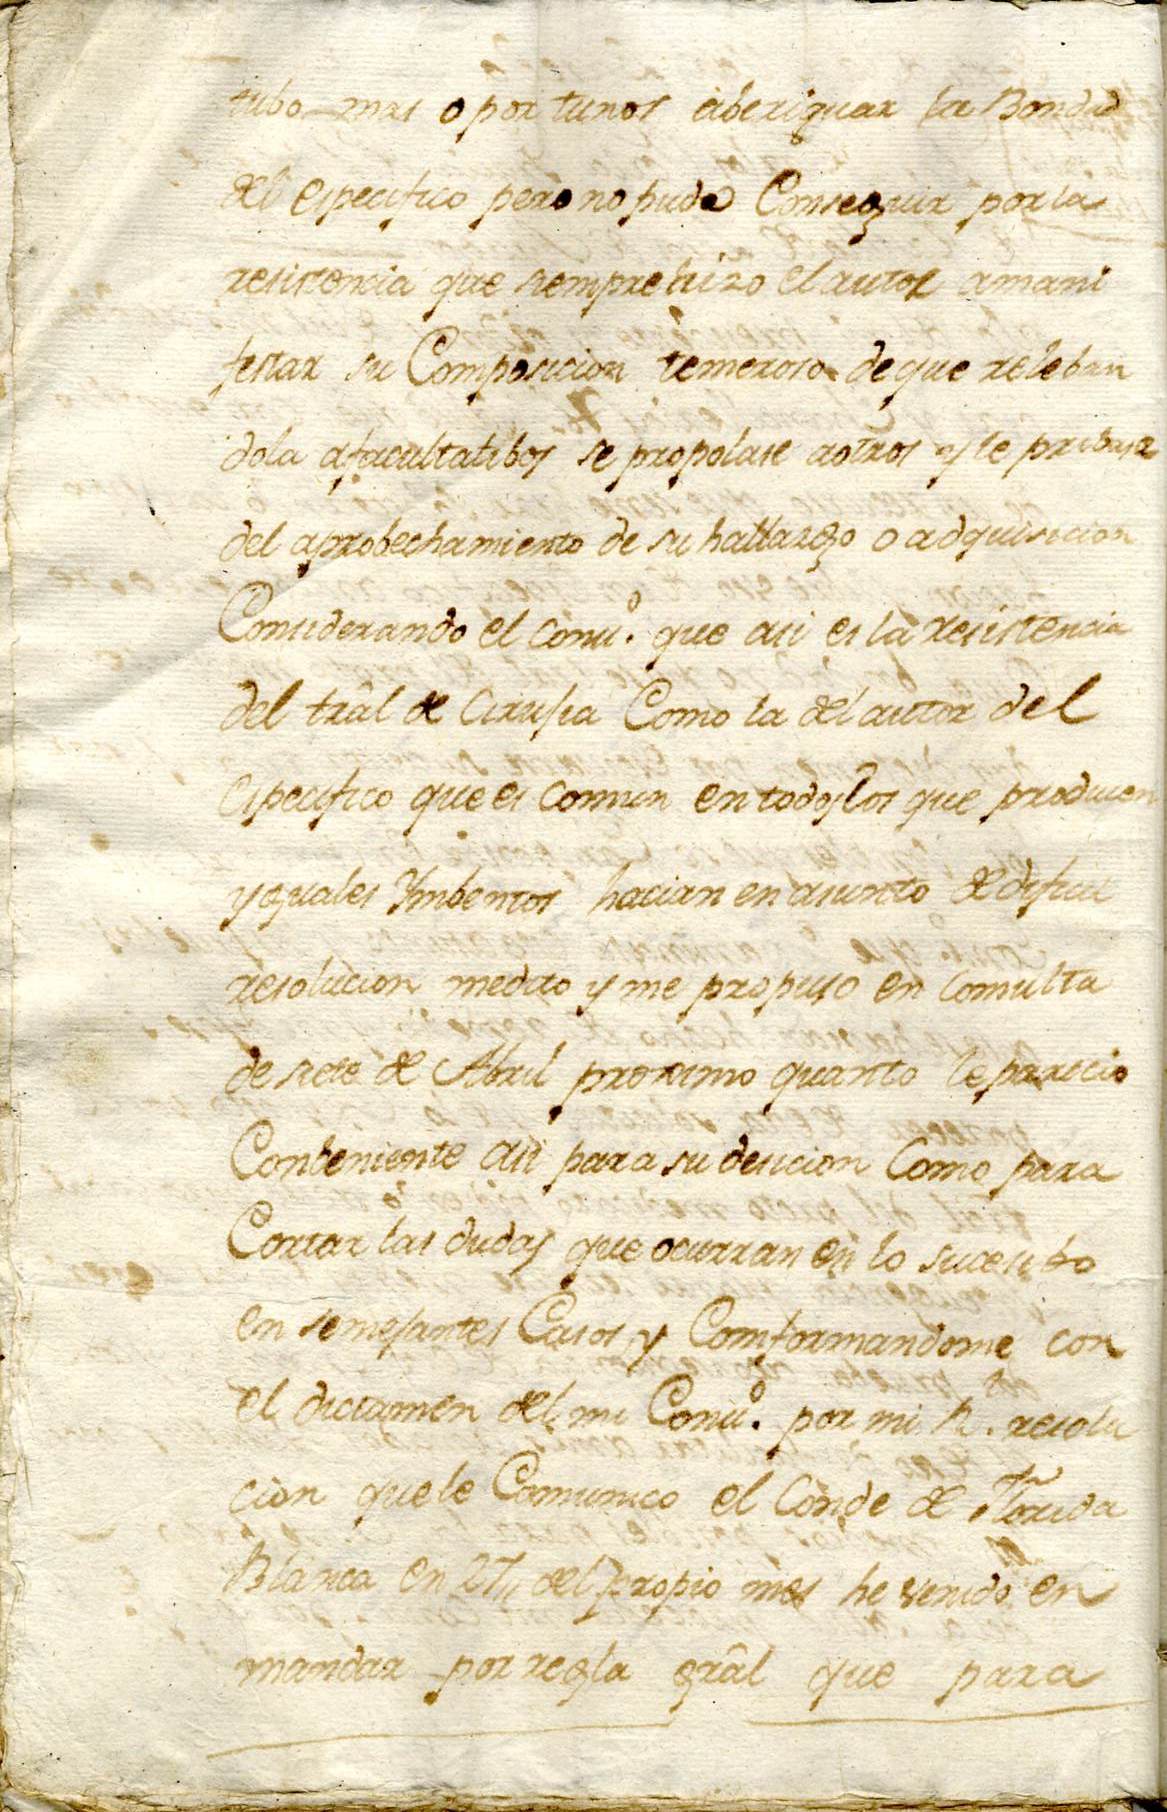 tubo mas oportunos aberiguar la Bondad
del especifico pero no pudo Conseguir por la
resistencia que siempre hizo el autor amani
festar su Composicion temeroso de que releban
dola afacultatibos se propolase aotros y le pribase
del aprobechamiento de su hallazgo o adquisicion
Considerando el Conso. que asi es la resistencia
del tral de Cirujia Como la del autor del
especifico que es comun en todos los que producen
yguales Ymbentos hacian en asunto de dificil
resolucion medito y me propuso en Consulta
de siete de Abril proximo quanto le parecio
Conbeniente asi para su decicion Como para
Cortar las dudas que ocurran en lo sucesibo
en semejantes Casos y Comformandome con
el dictamen del mi Conso. por mi R. resolu
cion que le Comunico el Conde de Florida
Blanca en 27,, del propio mes he venido en
mandar por regla gral que para